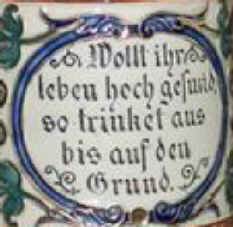 Wollt ihr
leben hoch gesund,
so trinket aus
bis auf den
Grund.